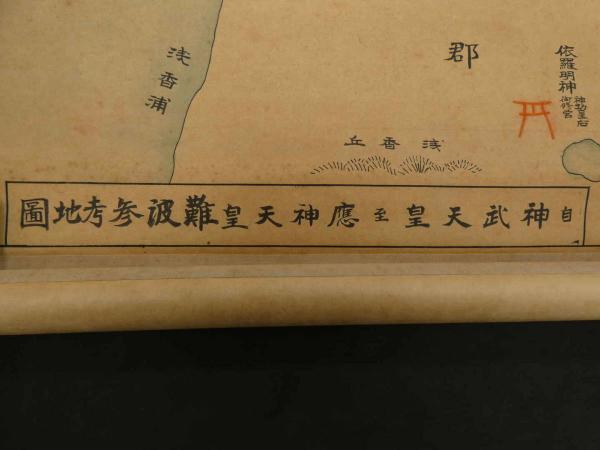 郡
依羅明神
神功皇后
浅香浦
浅香丘
自神武天皇至應神天皇難波参考地圖